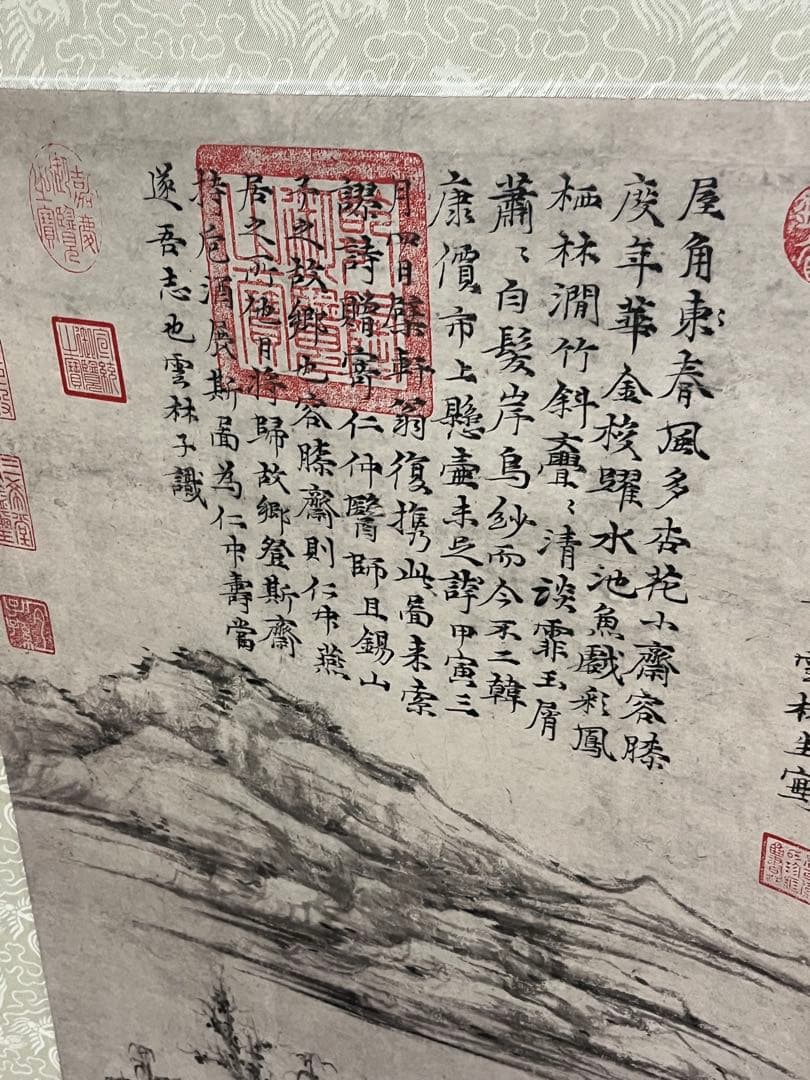 雲林生寫
屋角東春風多杏花小齋容膝
度年華金梭躍水池魚戲彩鳳
栖林澗竹斜亹〻清談霏玉屑
蕭〻白髮岸烏紗而今不二韓
康價市上懸壺未足誇甲寅三
月四日檗軒翁復攜此圖來索
謬詩贈寄仁仲醫師且錫山
予之故鄉也容膝齋則仁中燕
居之所他日將歸故鄉登斯齋
持卮酒展斯啚為仁中壽當
遂吾志也雲林子識
嘉慶御覽之寶
宣統御覽之寶